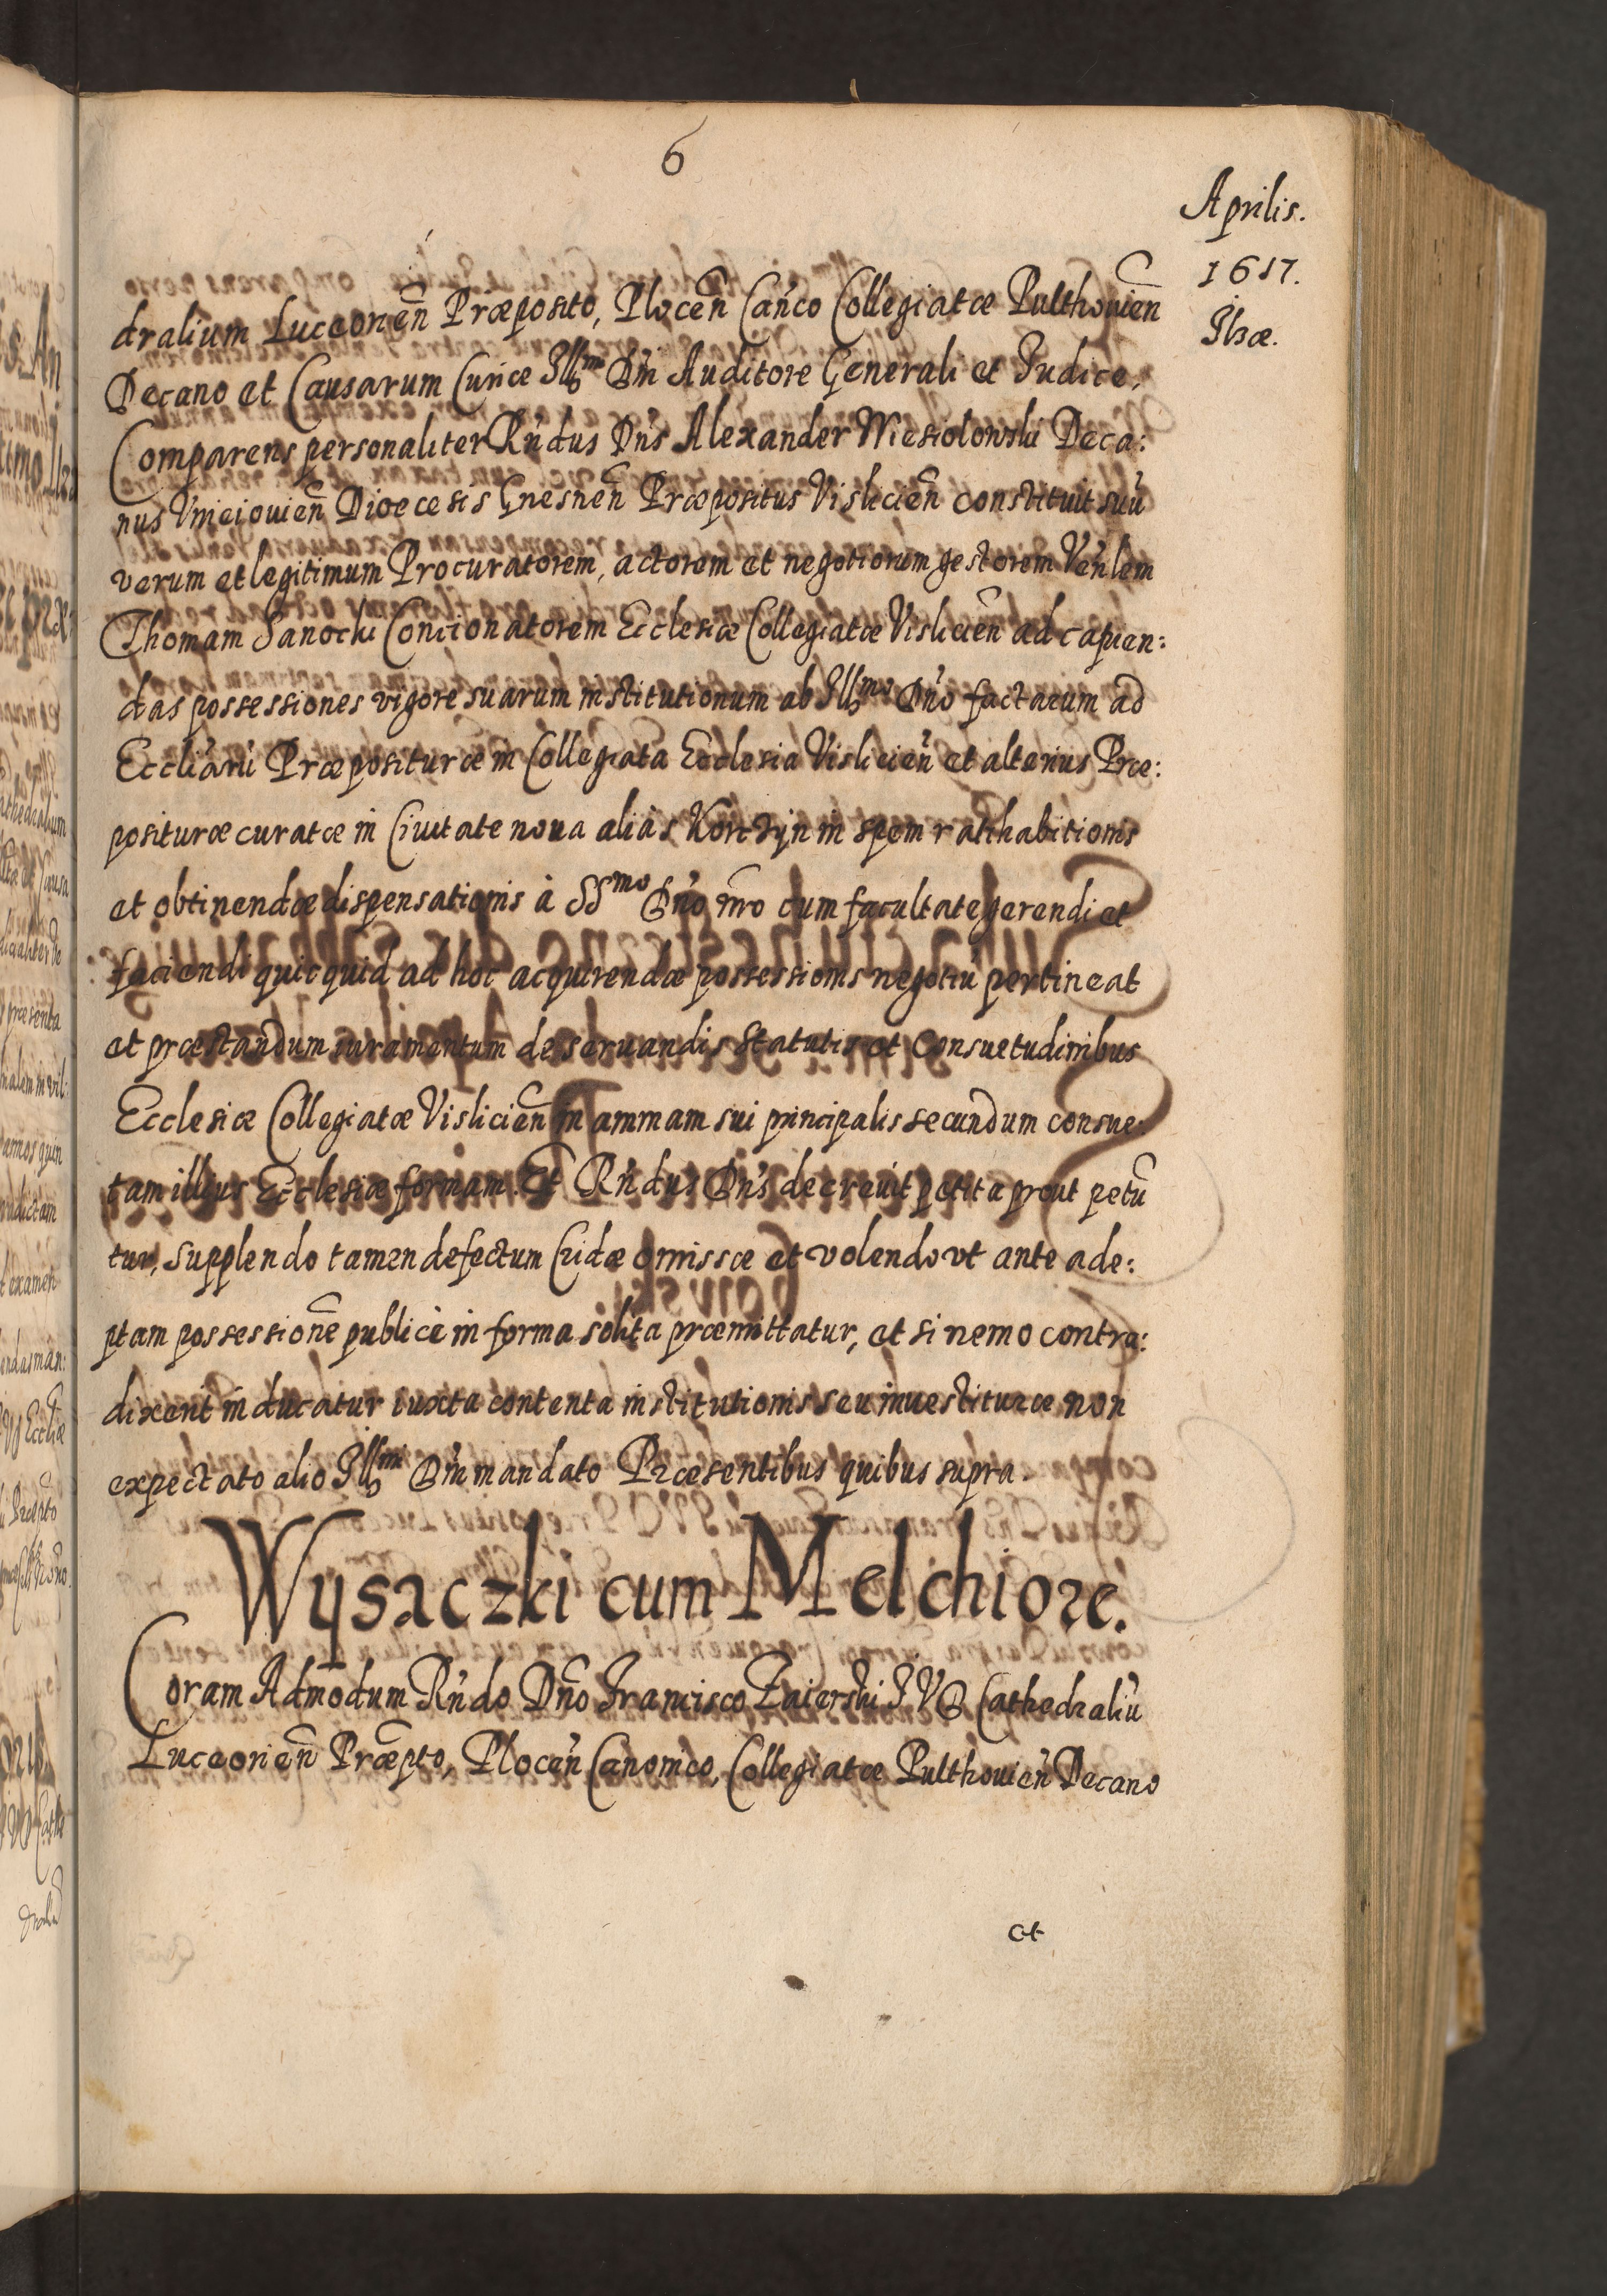 6
Aprilis.
1617.
Ilzæ.
dralium Luceorien̄ Præposito, Plocen̄ Can̄co Collegiatæ Pulthouien̄
Decano et Causarum Curiæ Illmi Dn̄i Auditore Generali et Iudice.
Comparens personaliter Rn̄dus Dn̄s Alexander Wiesiolowski Deca:
nus Vnieiouien̄ Dioecesis Gnesnen̄ Præpositus Vislicien̄ constituit suū
verum et legitimum Procuratorem, actorem et negotiorum gestorem Ven̄lem
Thomam Sanocki Concionatorem Ecclesiæ Collegiatæ Vislicien̄ ad capien:
das possessiones vigore suarum institutionum ab Illmo Dn̄o factarum ad
Eccliarū Præposituræ in Collegiata Ecclesia Vislicien̄ et alterius Præ:
posituræ curatæ in Ciuitate noua aliàs Korczÿn in spem ratihabitionis
et obtinendæ dispensationis à SSmo Dn̄o nr̄o cum facultate gerendi et
faciendi quicquid ad hoc acquirendæ possessionis negotiū pertineat
et præstandum iuramentum de seruandis Statutis et Consuetudinibus
Ecclesiæ Collegiatæ Vislicien̄ in animam sui principalis secundum consue:
tam illius Ecclesiæ formam. Et Rn̄dus Dn̄s decreuit petita prout petū
tur, supplendo tamen defectum Cridæ omissæ et volendo vt ante ade:
ptam possessionē publicè in forma solita præmittatur, et si nemo contra:
dixerit inducatur iuxta contenta institutionis seu inuestituræ non
expectato alio Illmi Dn̄i mandato Præsentibus quibus supra.
Wysaczki cum Melchiore.
Coram Admodum Rn̄do Dn̄o Francisco Zaierski I V D Cathedraliū
Luceorien̄ Præpto, Plocen̄ Canonico, Collegiatæ Pulthouien̄ Decano
et